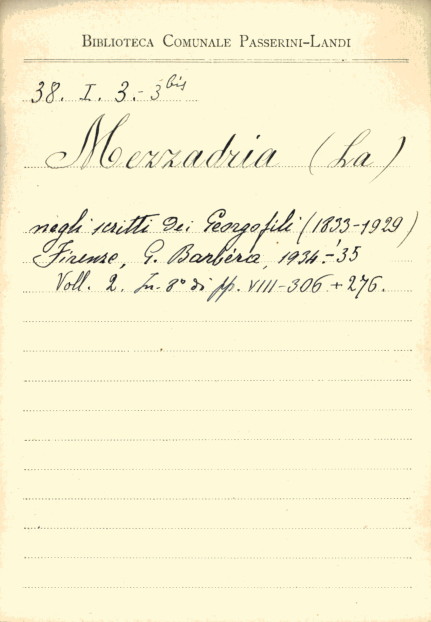 BIBLIOTECA COMUNALE PASSERINI-LANDI
38. I. 3.-3 bis
Mezzadria (La)
negli scritti dei Georgofili (1833-1929)
Firenze, G. Barbèra, 1934-'35
Voll. 2. In-8° di pp. VIII-306 + 276.